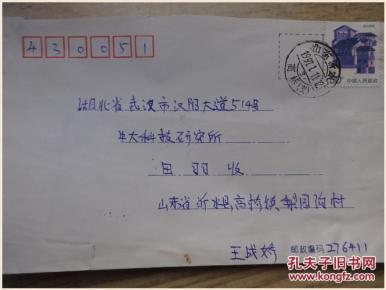 430051
湖北省武汉市汉阳大道514号
大科技研究所
田羽 收
山东省沂水县高桥镇梨园沟村
王成娇
邮政编码276411
中国人民邮政
孔夫子旧书网